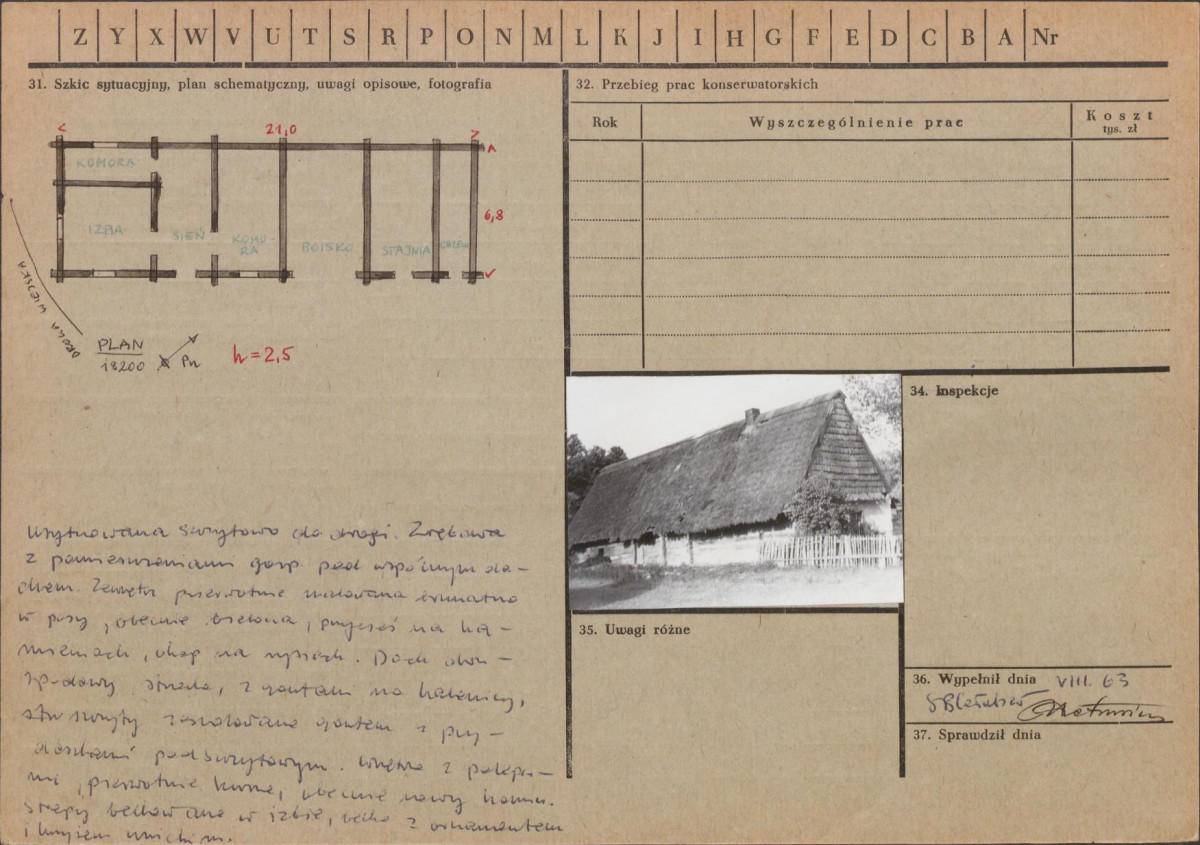 Z Y X W V U T S R P O N M L K J I H G F E D C B A Nr
31. Szkic sytuacyjny, plan schematyczny, uwagi opisowe, fotografia
21,0
KOMORA
6,8
IZBA SIEŃ KOMO-
RA BOISKO STAJNIA CHLEW
DROGA WIEJSKA
PLAN
1:200 Pn h=2,5
Usytuowana szczytowo do drogi. Zrębowa
z pomieszczeniami gosp. pod wspólnym da-
chem. Zewnątrz pierwotnie malowana
w pasy, obecnie bielona, na ka-
mieniach, na rysiach. Dach dwu-
spadowy, strzecha, z gontami na kalenicy,
szczyty zeszalowane gontem z przy-
daszkami podszczytowym. Wnętrze z polepa-
mi, pierwotnie kurne, obecnie nowy komin.
Stropy belkowane w izbie, belka z ornamentem
i
32. Przebieg prac konserwatorskich
Rok Wyszczególnienie prac Koszt
tys. zł
34. Inspekcje
35. Uwagi różne
36. Wypełnił dnia VIII. 63
37. Sprawdził dnia